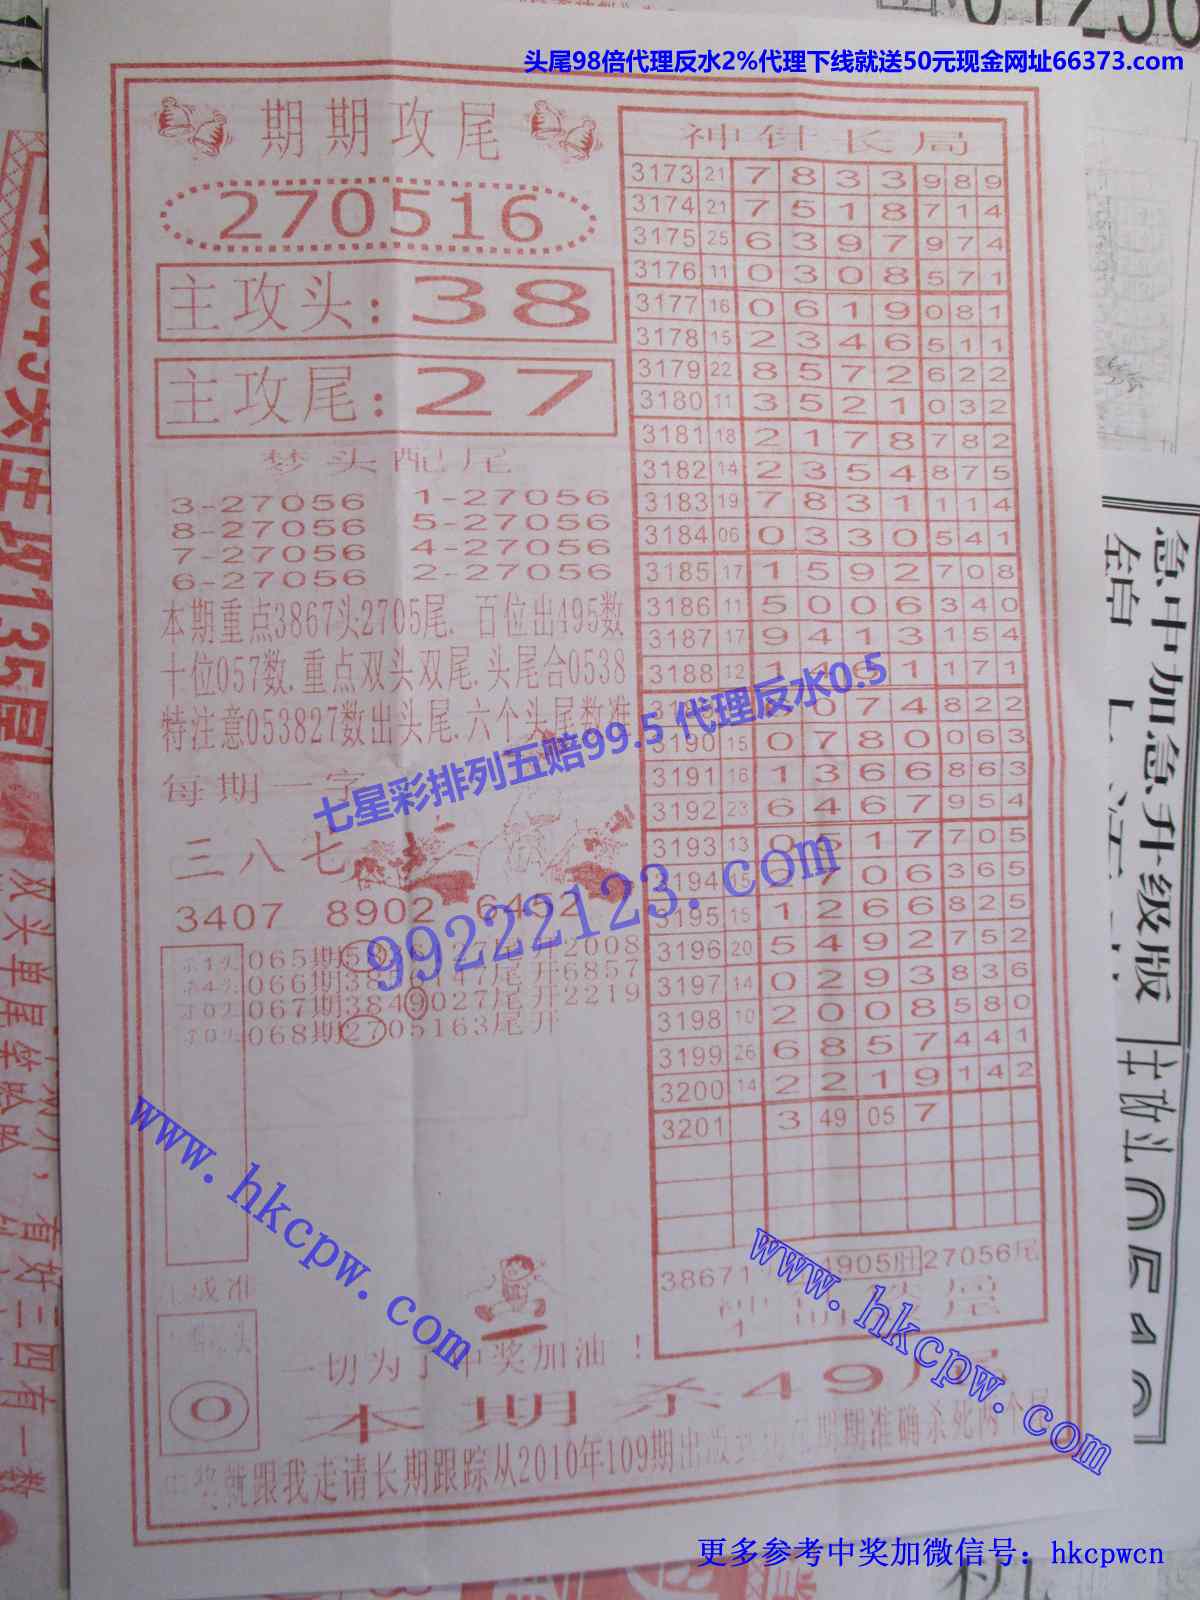 头尾98倍代理反水2%代理下线就送50元现金网址66373.com
期期攻尾
270516
主攻头: 38
主攻尾: 27
梦头配尾
3-27056 1-27056
8-27056 5-27056
7-27056 4-27056
6-27056 2-27056
本期重点3867头2705尾. 百位出495数
十位057数.重点双头双尾.头尾合0538
特注意053827数出头尾.六个头尾数准
每期一字
三八七
3407 8902 6452
065期 27尾开2008
066期38 147尾开6857
067期3849027尾开2219
068期2705163尾开
神针长局
3173 21 7 8 3 3 9 8 9
3174 21 7 5 1 8 7 1 4
3175 25 6 3 9 7 9 7 4
3176 11 0 3 0 8 5 7 1
3177 16 0 6 1 9 0 8 1
3178 15 2 3 4 6 5 1 1
3179 22 8 5 7 2 6 2 2
3180 11 3 5 2 1 0 3 2
3181 18 2 1 7 8 7 8 2
3182 14 2 3 5 4 8 7 5
3183 19 7 8 3 1 1 1 4
3184 06 0 3 3 0 5 4 1
3185 17 1 5 9 2 7 0 8
3186 11 5 0 0 6 3 4 0
3187 17 9 4 1 3 1 5 4
3188 12 1 4 6 1 1 7 1
0 7 4 8 2 2
3190 15 0 7 8 0 0 6 3
3191 16 1 3 6 6 8 6 3
3192 23 6 4 6 7 9 5 4
3193 13 0 5 1 7 7 0 5
3194 15 7 0 6 3 6 5
3195 15 1 2 6 6 8 2 5
3196 20 5 4 9 2 7 5 2
3197 14 0 2 9 3 8 3 6
3198 10 2 0 0 8 5 8 0
3199 26 6 8 5 7 4 4 1
3200 14 2 2 1 9 1 4 2
3201 3 49 05 7
38671 4905胆 27056尾
0
一切为了中奖加油 !
本期杀49尾
中奖就跟我走请长期跟踪从2010年109期出版 期期准确杀死两个尾
七星彩排列五赔99.5 代理反水0.5
99222123.com
www.hkcpw.com
www.hkcpw.com
更多参考中奖加微信号：hkcpwcn
急中加急升级版
主攻头
双头单尾
有好三四有一数